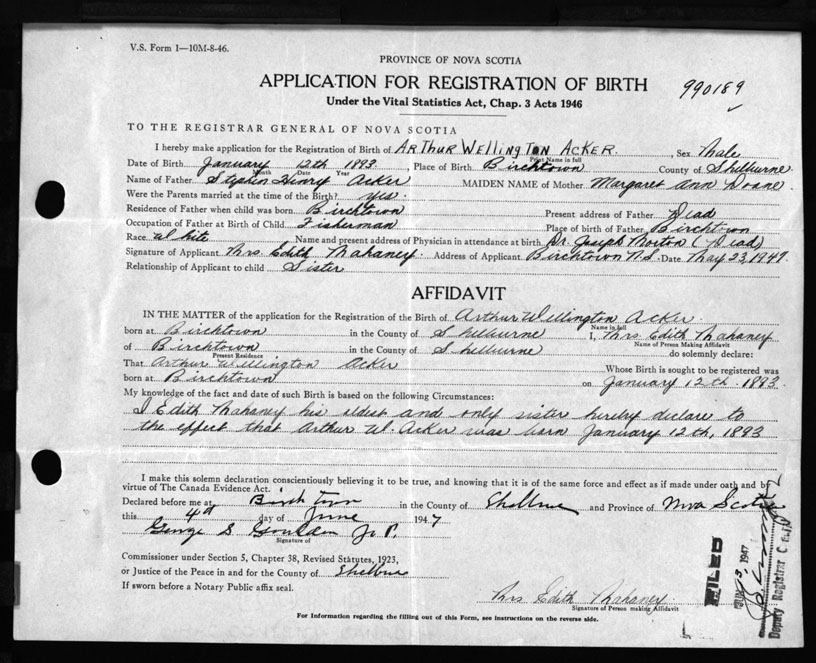 V.S. Form 1—10M-8-46.
PROVINCE OF NOVA SCOTIA
APPLICATION FOR REGISTRATION OF BIRTH
990189
Under the Vital Statistics Act, Chap. 3 Acts 1946
TO THE REGISTRAR GENERAL OF NOVA SCOTIA
I hereby make application for the Registration of Birth of ARTHUR WELLINGTON ACKER. , Sex Male
Print Name in full
Date of Birth January 12th 1893 , Place of Birth Birchtown County of Shelburne
Month Date Year
Name of Father Stephen Henry Acker MAIDEN NAME of Mother Margaret Ann Doane
Were the Parents married at the time of the Birth? yes
Residence of Father when child was born Birchtown Present address of Father Dead
Occupation of Father at Birth of Child Fisherman Place of birth of Father Birchtown
Race White Name and present address of Physician in attendance at birth Dr. Joseph Morton (Dead)
Signature of Applicant Mrs. Edith Mahaney. Address of Applicant Birchtown N.S. Date May 23, 1947.
Relationship of Applicant to child Sister
AFFIDAVIT
IN THE MATTER of the application for the Registration of the Birth of Arthur Wellington Acker.
Name in full
born at Birchtown in the County of Shelburne I, Mrs. Edith Mahaney
Name of Person Making Affidavit
of Birchtown in the County of Shelburne do solemnly declare:
Present Residence
That Arthur Wellington Acker Whose Birth is sought to be registered was
born at Birchtown on January 12th. 1893.
My knowledge of the fact and date of such Birth is based on the following Circumstances:
I Edith Mahaney his eldest and only sister hereby declare to
the effect that Arthur W. Acker was born January 12th, 1893
I make this solemn declaration conscientiously believing it to be true, and knowing that it is of the same force and effect as if made under oath and by
virtue of The Canada Evidence Act.
Declared before me at Birchtown in the County of Shelburne and Province of Nova Scotia
this 4th day of June 1947
George S. J.P.
Signature of
Commissioner under Section 5, Chapter 38, Revised Statutes, 1923,
or Justice of the Peace in and for the County of Shelburne
If sworn before a Notary Public affix seal.
Mrs Edith Mahaney.
Signature of Person making Affidavit
For Information regarding the filling out of this Form, see instructions on the reverse side.
FILED
1947
Deputy Registrar